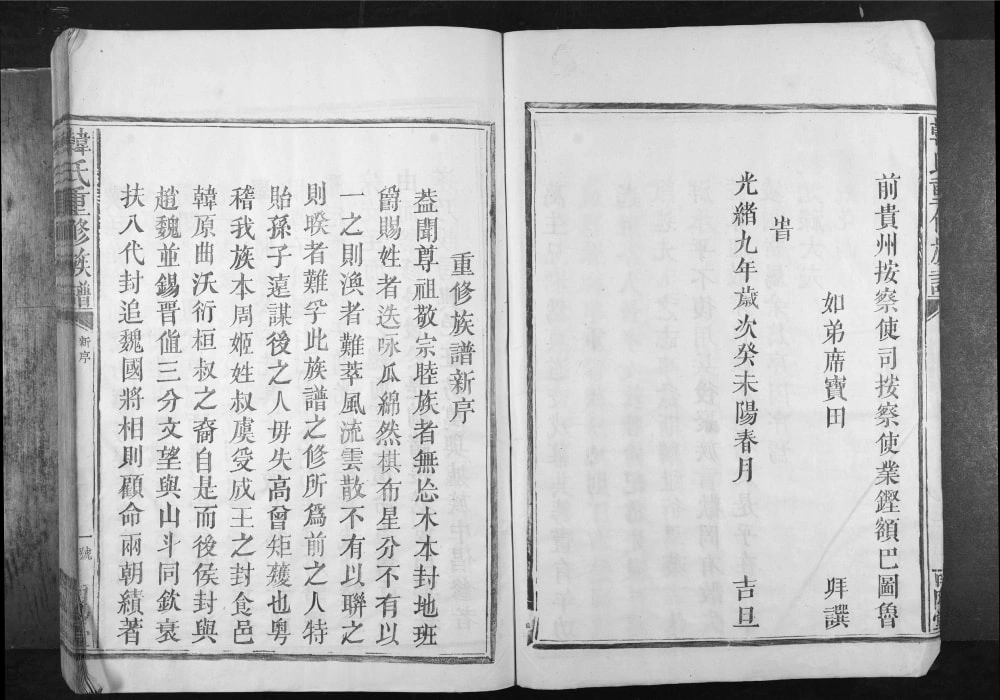 前貴州按察使司按察使業鏗額巴圖魯
如弟席寶田 拜譔
旹
光緒九年歲次癸未陽春月 吉旦
重修族譜新序
葢聞尊祖敬宗睦族者無忘木本封地班
爵賜姓者迭咏瓜綿然棋布星分不有以
一之則渙者難萃風流雲散不有以聯之
則暌者難孚此族譜之修所爲前之人特
貽孫子遠謀後之人毋失高曾矩矱也粤
稽我族本周姬姓叔虞受成王之封食邑
韓原曲沃衍桓叔之裔自是而後侯封與
趙魏並錫晋僅三分文望與山斗同欽衰
扶八代封追魏國將相則顧命兩朝績著
韓氏重修族譜
新序
一號